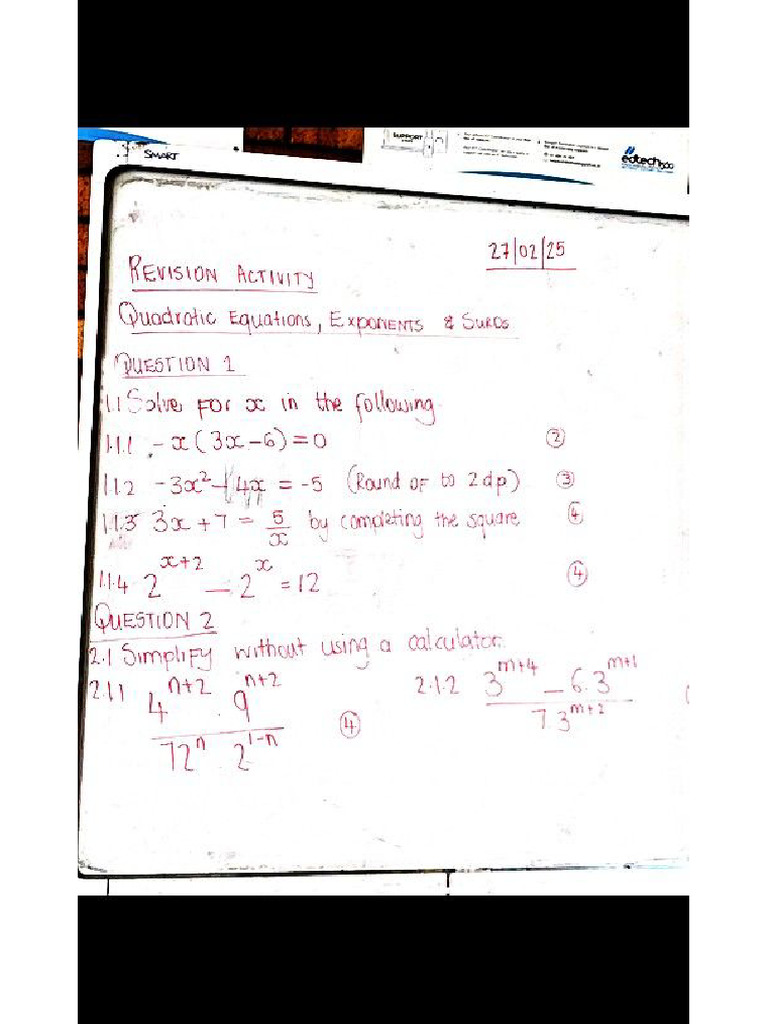 SMART
SUPPORT
edtech
27/02/25
REVISION ACTIVITY
Quadratic Equations, Exponents & Surds
QUESTION 1
1.1 Solve for x in the following
1.1.1 -x(3x-6)=0 (2)
1.1.2 -3x² - 4x = -5 (Round of to 2dp) (3)
1.1.3 3x+7 = 5/x by completing the square (4)
1.1.4 2^(x+2) - 2^x = 12 (4)
QUESTION 2
2.1 Simplify without using a calculator.
2.1.1 (4^(n+2) . 9^(n+2)) / (72^n . 2^(1-n)) (4)
2.1.2 (3^(m+4) - 6.3^(m+1)) / (7.3^(m+2))